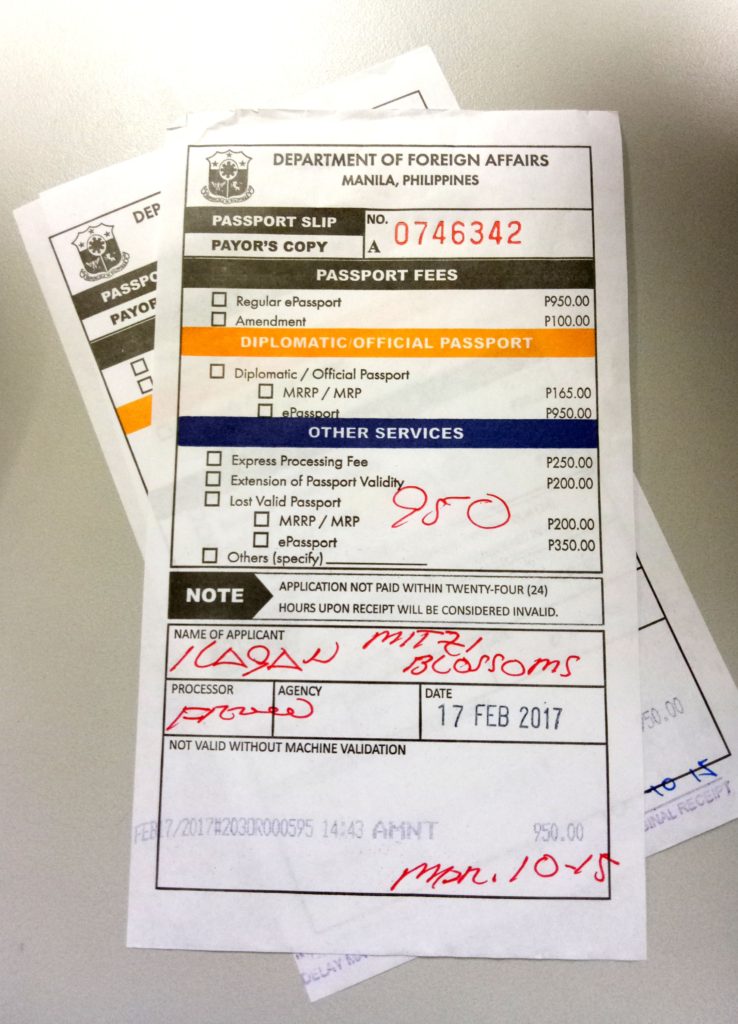 DEPARTMENT OF FOREIGN AFFAIRS
MANILA, PHILIPPINES
PASSPORT SLIP
PAYOR'S COPY
NO.
A 0746342
PASSPORT FEES
Regular ePassport P950.00
Amendment P100.00
DIPLOMATIC/OFFICIAL PASSPORT
Diplomatic / Official Passport
MRRP / MRP P165.00
ePassport P950.00
OTHER SERVICES
Express Processing Fee P250.00
Extension of Passport Validity P200.00
Lost Valid Passport
950
MRRP / MRP P200.00
ePassport P350.00
Others (specify)
NOTE
APPLICATION NOT PAID WITHIN TWENTY-FOUR (24)
HOURS UPON RECEIPT WILL BE CONSIDERED INVALID.
NAME OF APPLICANT
ILAGAN MITZI
BLOSSOMS
PROCESSOR AGENCY DATE
17 FEB 2017
NOT VALID WITHOUT MACHINE VALIDATION
FEB17/2017#203OR000595 14:43 AMNT 950.00
Mar. 10-15
DEP
PASSPO
PAYOR
50.00
10-15
GINAL RECEIPT
DELAY